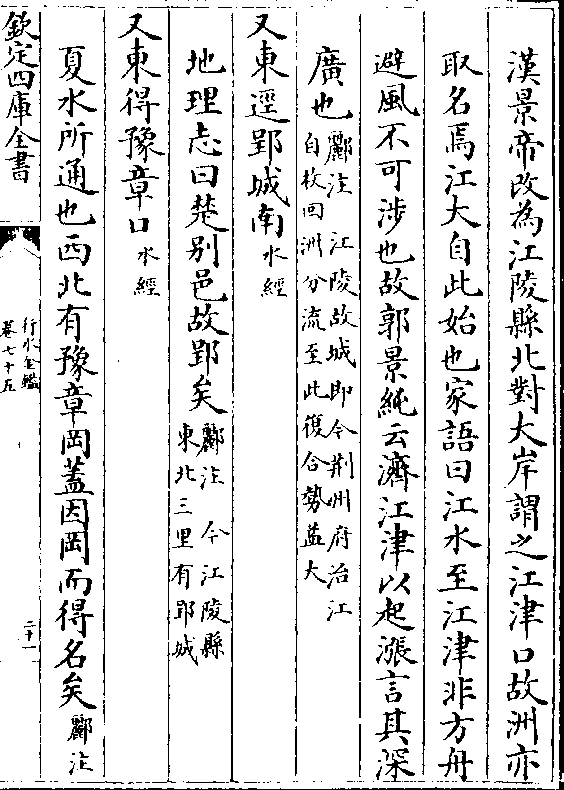 漢景帝改為江陵縣北對大岸謂之江津口故洲亦
取名焉江大自此始也家語曰江水至江津非方舟
避風不可涉也故郭景純云濟江津以起漲言其深
廣也酈注　江陵故城即今荆州府治江
自枚回洲分流至此復合勢益大
又東逕郢城南水經
地理志曰楚别邑故郢矣酈注　今江陵縣
東北三里有郢城
又東得豫章口水經
夏水所通也西北有豫章岡蓋因岡而得名矣酈注
欽定四庫全書
行水金鑑
卷七十五
二十一